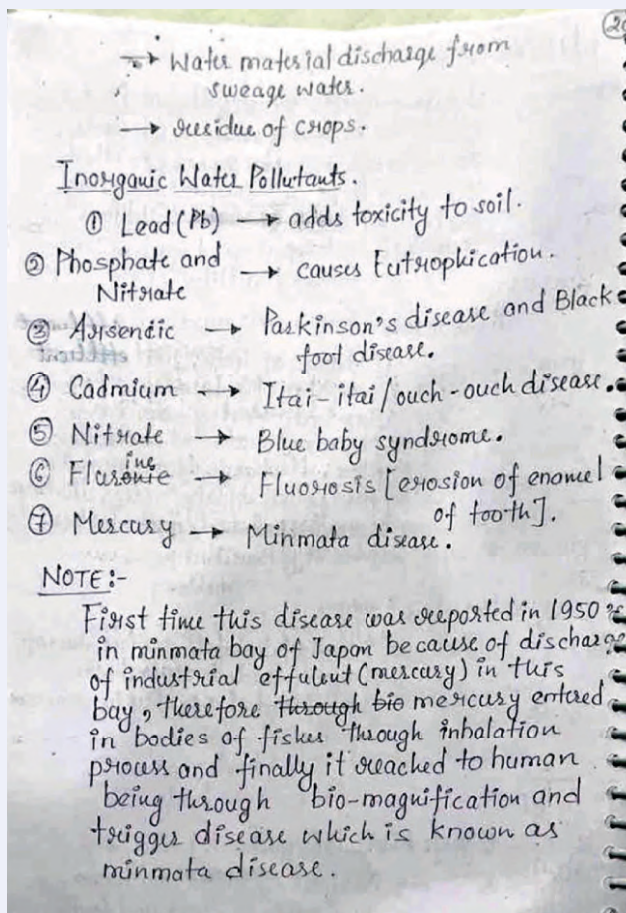 20
→ Water material discharge from
sweage water.
→ residue of crops.
Inorganic Water Pollutants.
① Lead (Pb) → adds toxicity to soil.
② Phosphate and → causes Eutrophication.
Nitrate
③ Arsendic → Parkinson's disease and Black
foot disease.
④ Cadmium ↔ Itai-itai/ouch-ouch disease.
⑤ Nitrate → Blue baby syndrome.
⑥ Flurine → Fluorosis [erosion of enamel
of tooth].
⑦ Mercury → Minmata disease.
NOTE:-
First time this disease was reported in 1950's
in minmata bay of Japan because of discharge
of industrial effulent (mercury) in this
bay, therefore through bio mercury entered
in bodies of fishes through inhalation
process and finally it reached to human
being through bio-magnification and
trigger disease which is known as
minmata disease.